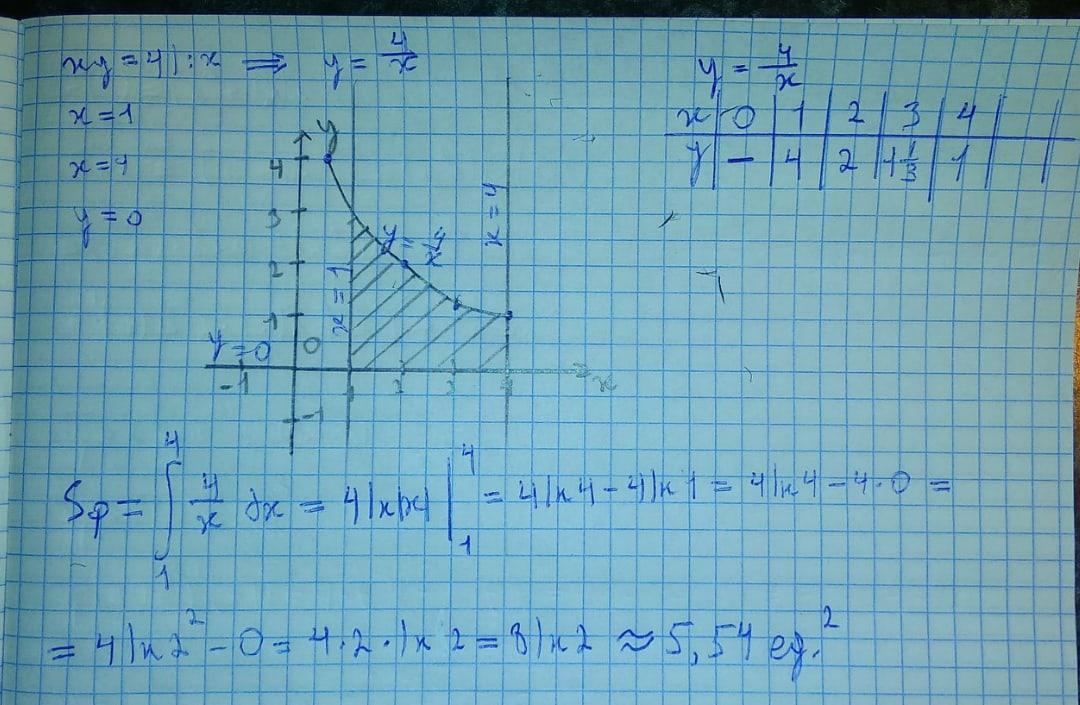 xy = 4 | : x ⇒ y = 4/x
x = 1
x = 4
y = 0
y = 4/x
x | 0 | 1 | 2 | 3 | 4
y | — | 4 | 2 | 1 1/3 | 1
y
4
3
2
1
y = 4/x
x = 1
x = 4
y = 0
0
-1 1 2 3 4 x
-1
Sφ = ∫₁⁴ 4/x dx = 4 ln|x| |₁⁴ = 4 ln 4 - 4 ln 1 = 4 ln 4 - 4 · 0 =
= 4 ln 2² - 0 = 4 · 2 · ln 2 = 8 ln 2 ≈ 5,54 ед.²